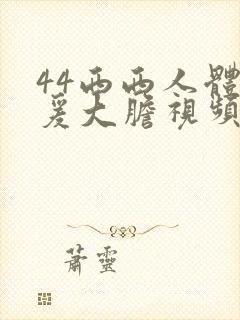 44西西人體
爰大膽視頻
蕭靈